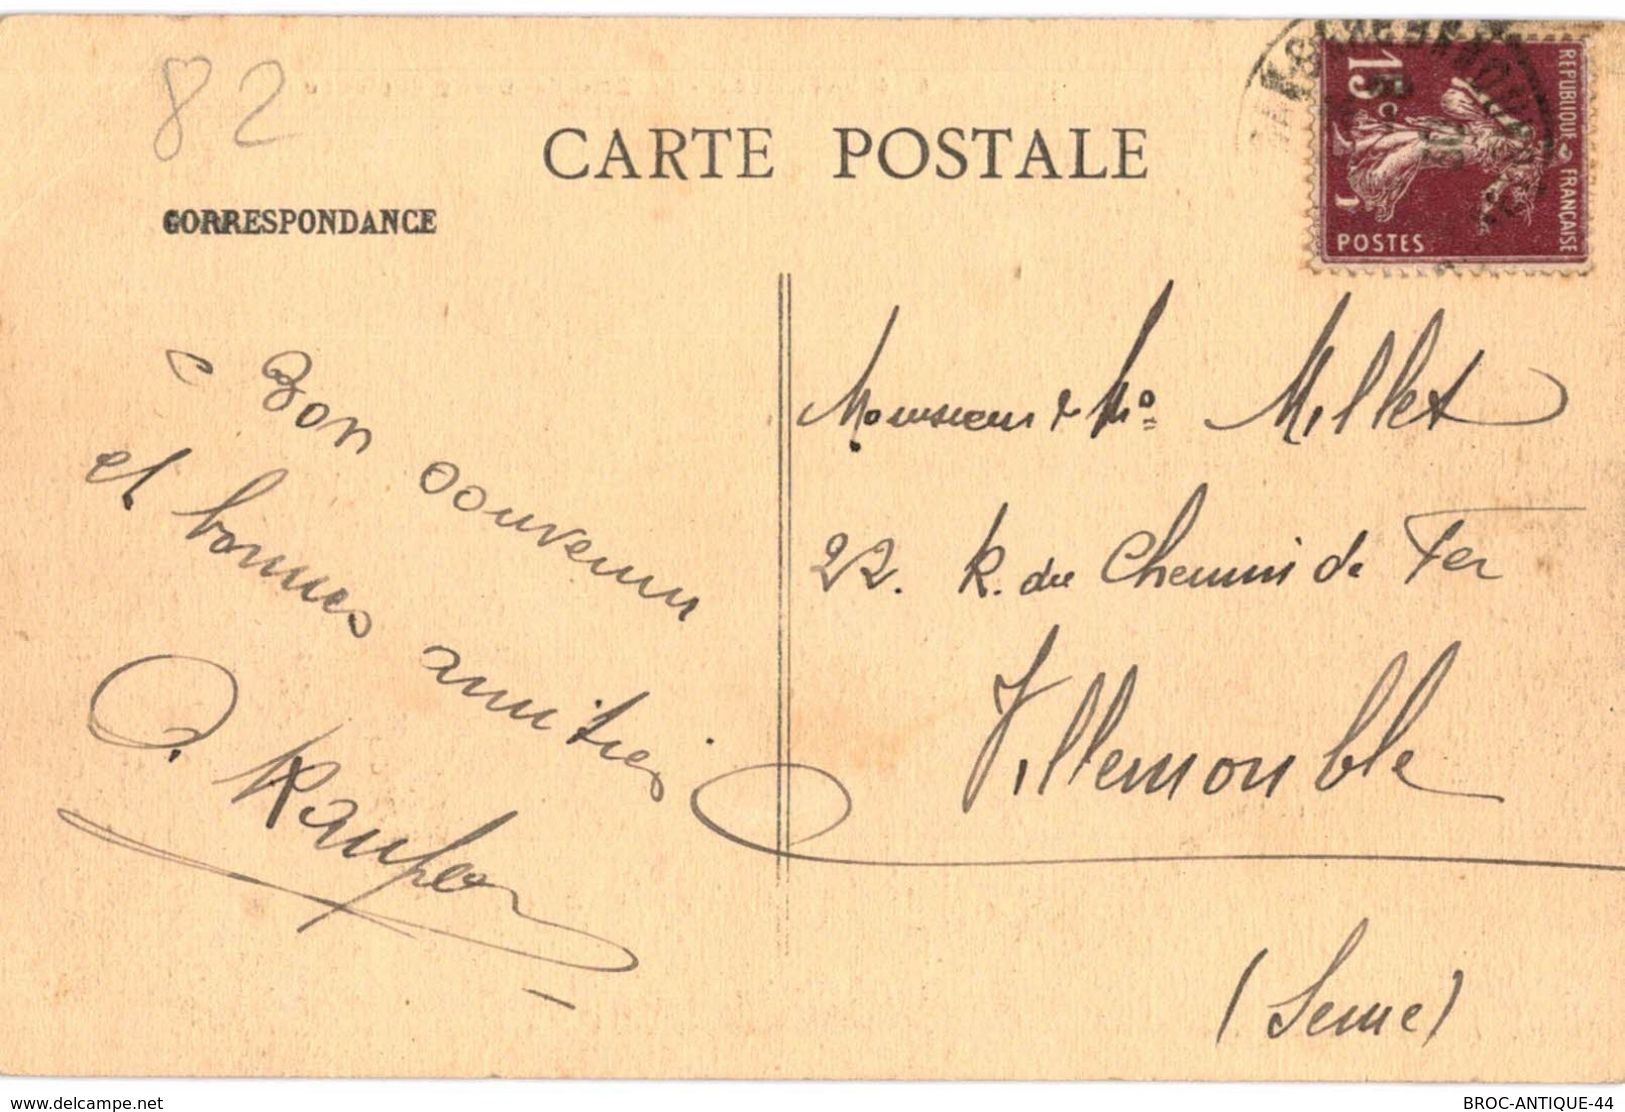 82
CARTE POSTALE
CORRESPONDANCE
REPUBLIQUE FRANÇAISE
15c
POSTES
Bon souvenir
et bonnes amitiés
Monsieur & Mme Millet
22. R. du Chemin de Fer
Villemomble
(Seine)
www.delcampe.net
BROC-ANTIQUE-44